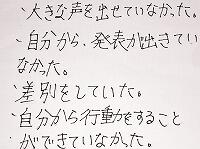 ・大きな声を出せていなかった。
・自分から、発表が出きてい
なかった。
・差別をしていた。
・自分から行動をすること
ができていなかった。